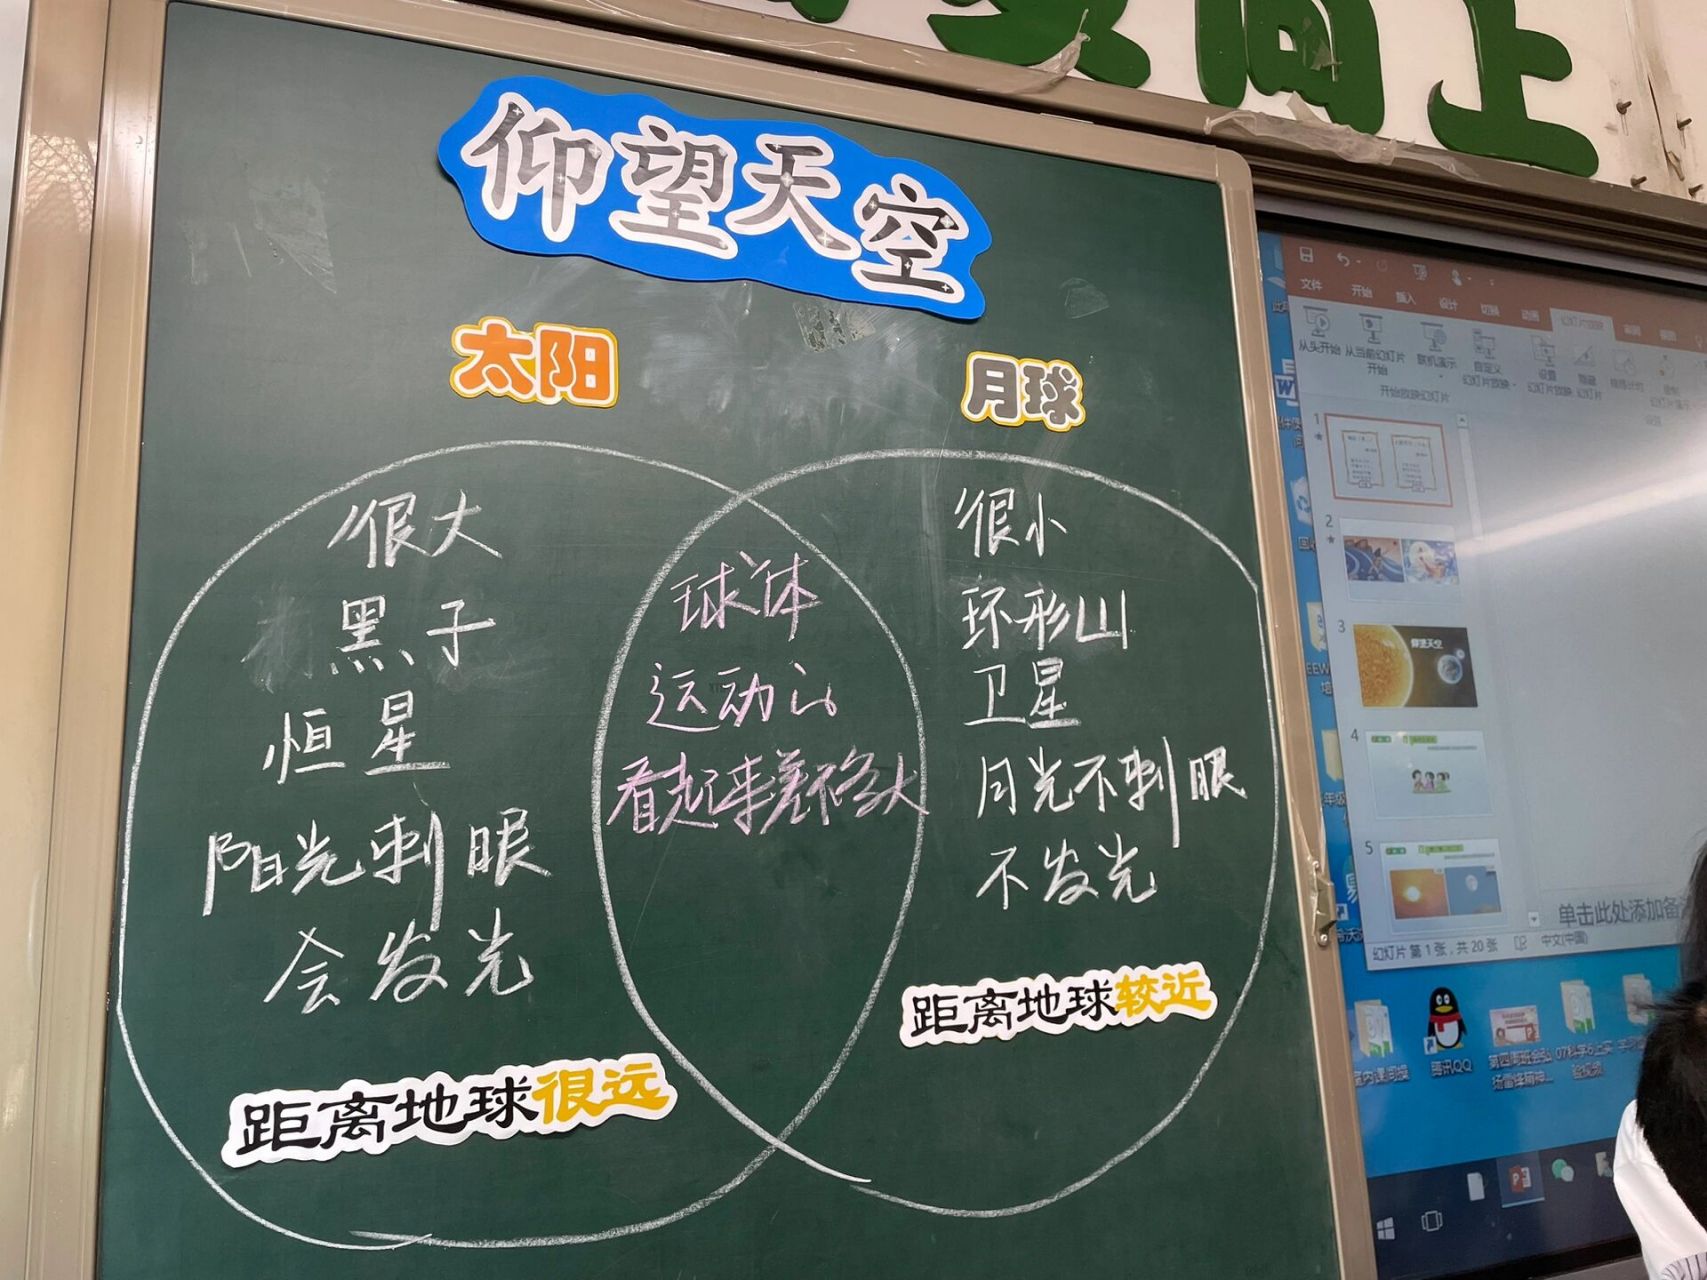 向上
仰望天空
太阳
月球
很大
黑子
恒星
阳光刺眼
会发光
距离地球很远
球体
运动的
看起来差不多大
很小
环形山
卫星
月光不刺眼
不发光
距离地球较近
文件 开始 插入 设计 切换 动画
从头开始 从当前幻灯片开始 联机演示 自定义幻灯片放映 设置幻灯片放映 隐藏幻灯片
开始放映幻灯片
1
2
3
仰望天空
4
5
单击此处添加备
幻灯片 第 1 张，共 20 张 中文(中国)
腾讯QQ